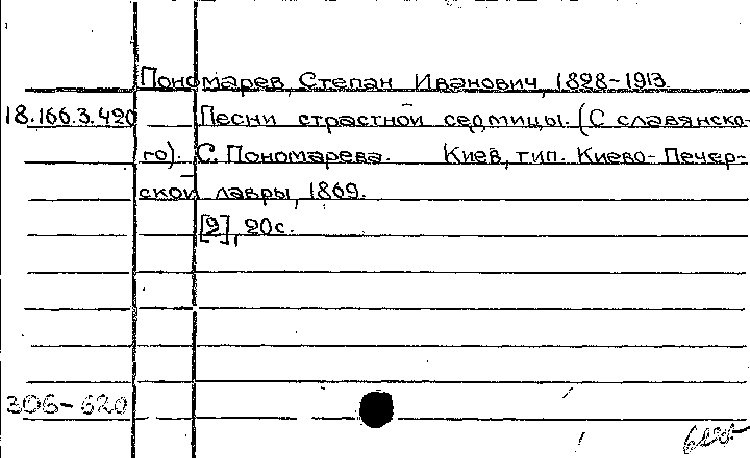 Пономарев, Степан Иванович, 1828-1913
18.166.3.420 Песни страстной седмицы. (С славянско-
го). С. Пономарева. Киев, тип. Киево-Печер-
ской лавры, 1869.
[2], 20с.
306-620